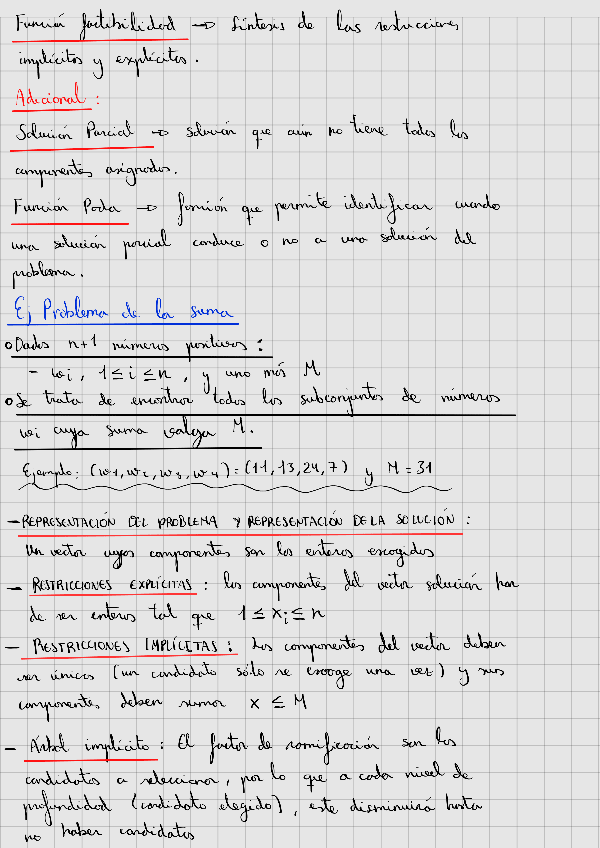 Función factibilidad → Síntesis de las restricciones
implícitas y explícitas.
Adicional:
Solución Parcial → solución que aún no tiene todos los
componentes asignados.
Función Poda → función que permite identificar cuando
una solución parcial conduce o no a una solución del
problema.
Ej Problema de la suma
o Dados n+1 números positivos:
- wi, 1 ≤ i ≤ n, y uno más M
o Se trata de encontrar todos los subconjuntos de números
wi cuya suma valga M.
Ejemplo: (w1, w2, w3, w4) = (11, 13, 24, 7) y M = 31
- REPRESENTACIÓN DEL PROBLEMA Y REPRESENTACIÓN DE LA SOLUCIÓN:
Un vector cuyos componentes son los enteros escogidos
- RESTRICCIONES EXPLÍCITAS: los componentes del vector solución han
de ser enteros tal que 1 ≤ xi ≤ n
- RESTRICCIONES IMPLÍCITAS: Los componentes del vector deben
ser únicos (un candidato sólo se escoge una vez) y sus
componentes deben sumar x ≤ M
- Árbol implícito: El factor de ramificación son los
candidatos a seleccionar, por lo que a cada nivel de
profundidad (candidato elegido), este disminuirá hasta
no haber candidatos